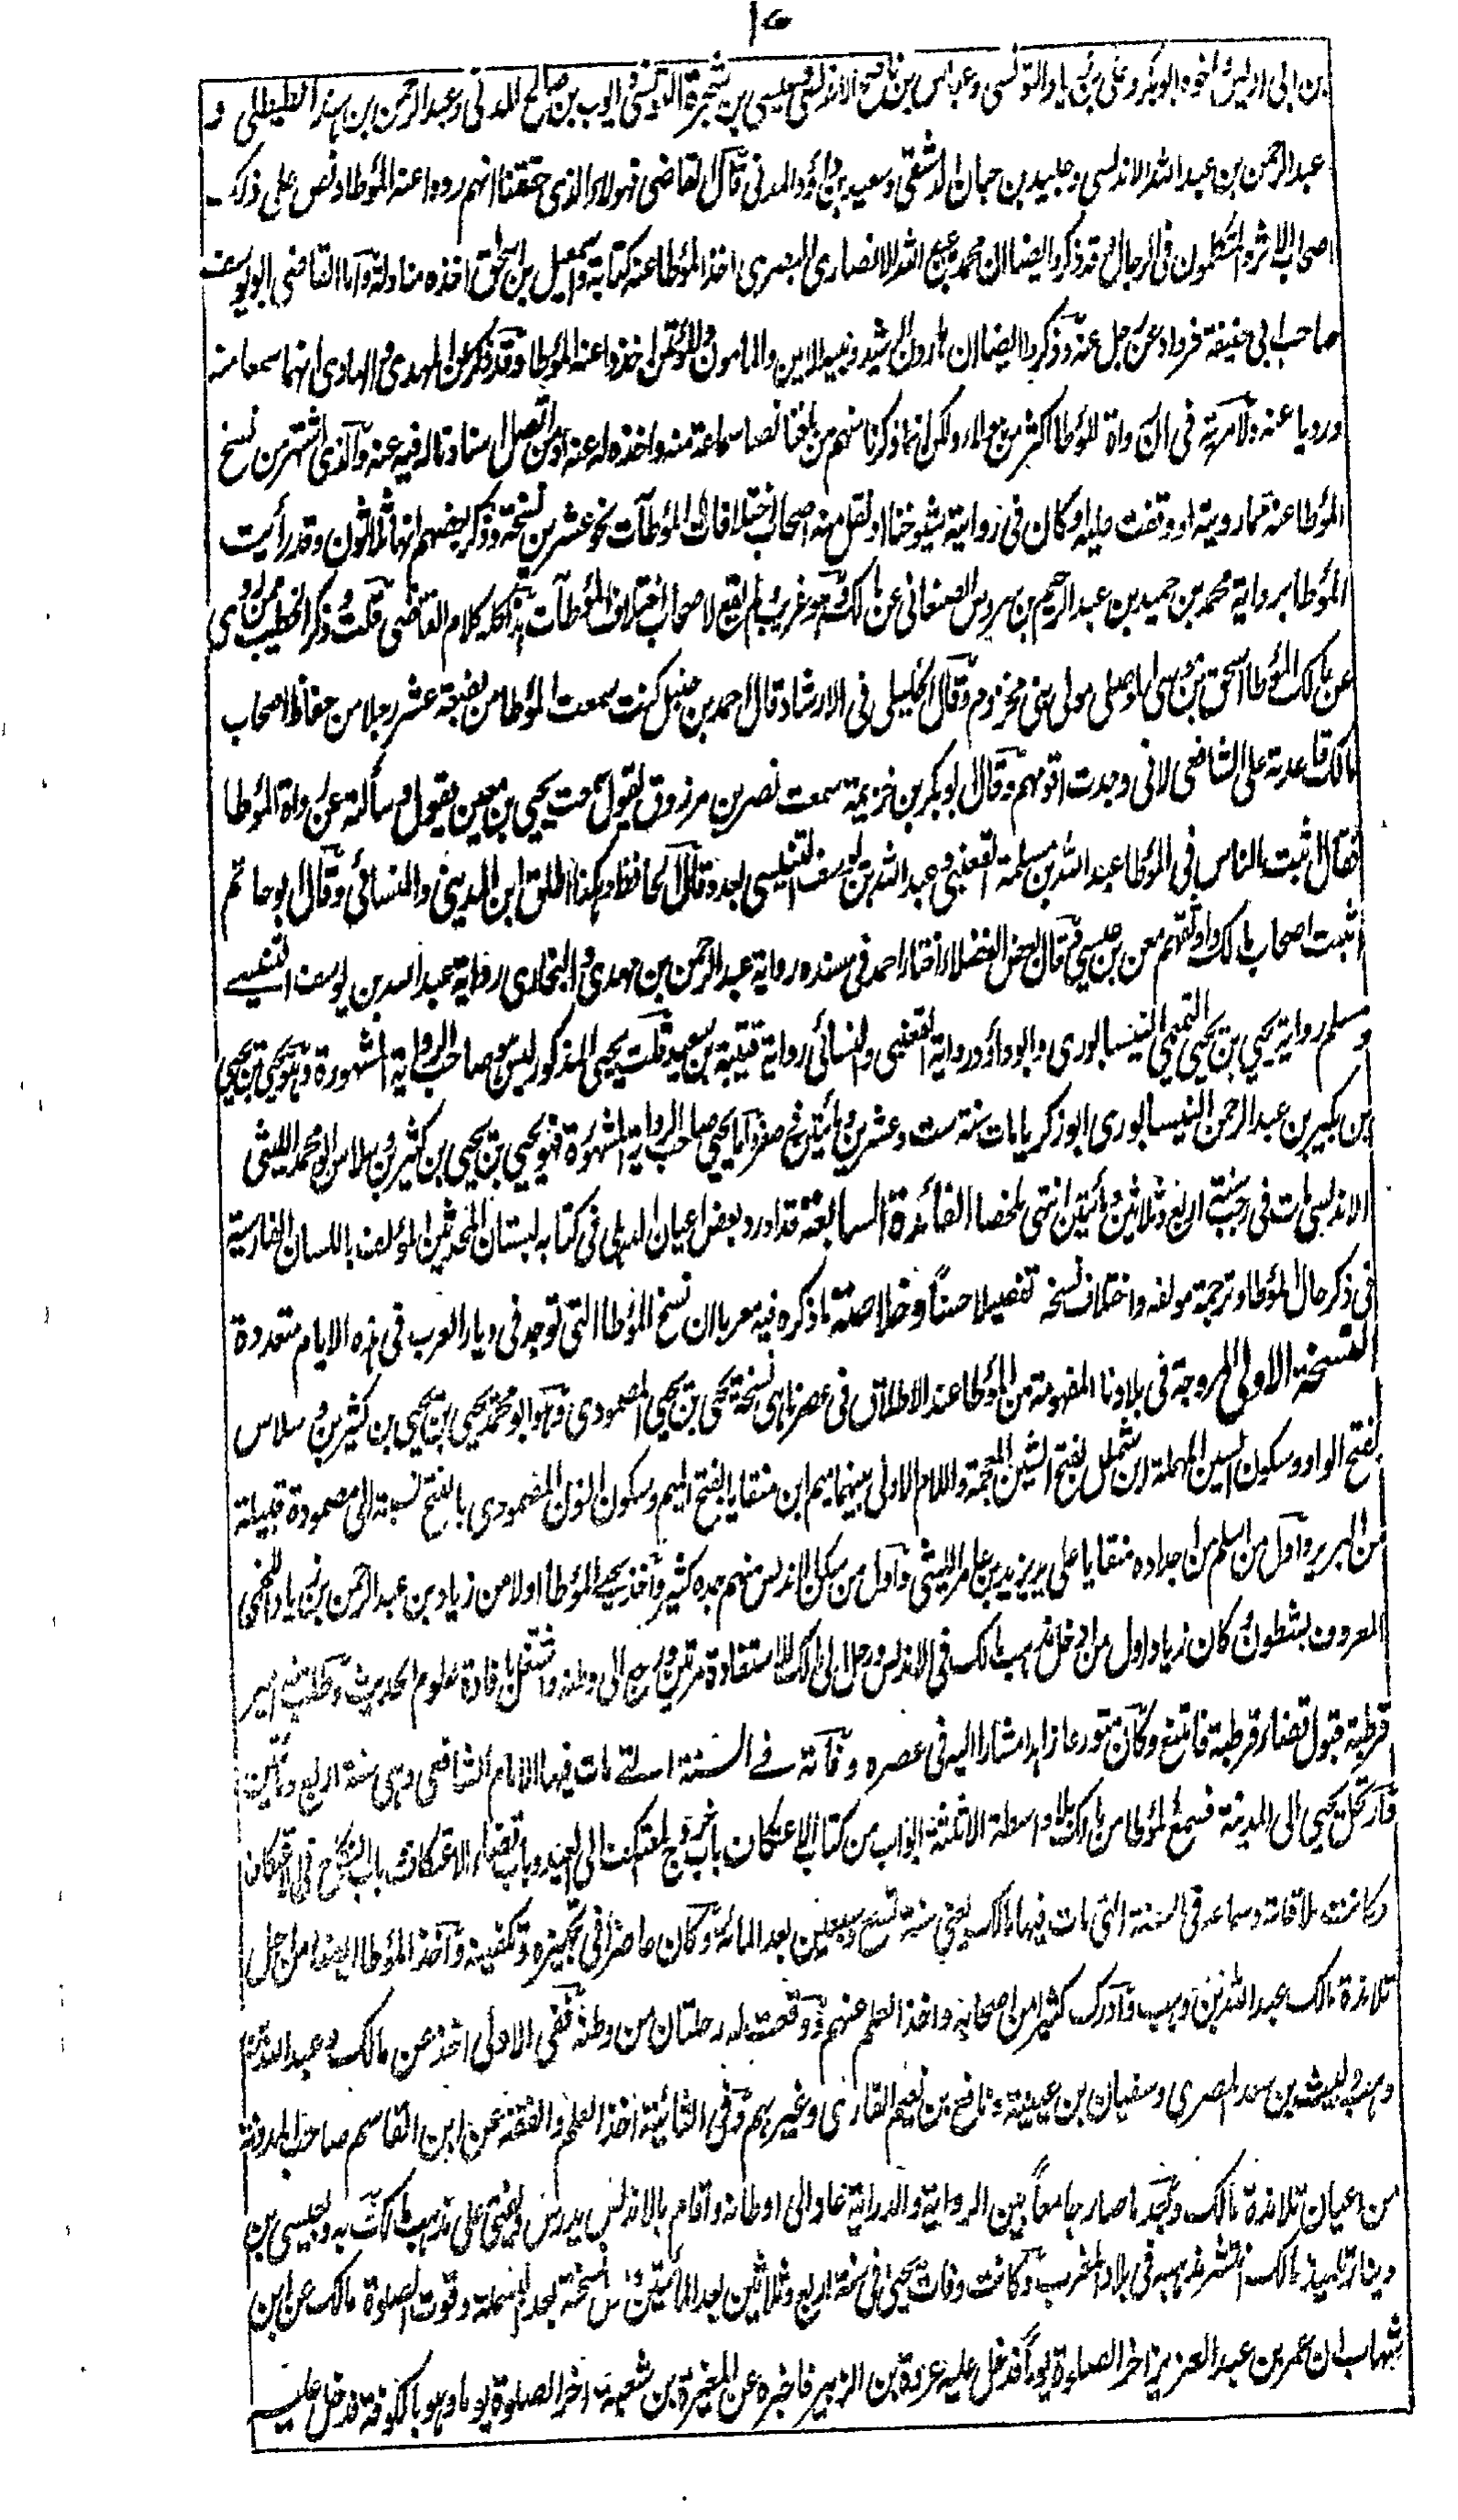 ١٧
بن ابى اويس واخوه ابو بكر وعلى بن زياد التونسى وعباس بن ناصح الاندلسى وعيسى بن شجرة التونسى وايوب بن صالح المدنى وعبد الرحمن بن هند الطليطلى و
عبد الرحمن بن عبد الله الاندلسى وعبيد بن حبان الدمشقى وسعيد بن داؤد المدنى قال القاضى فهولاء الذى حققنا انهم رووا عنه المؤطا ونص على ذلك
اصحاب الاثر والمتكلمون فى الرجال وقد ذكروا ايضا ان محمد بن عبد الله الانصارى البصرى اخذ المؤطا عنه كتابة واسمعيل بن اسحق اخذه مناولة واما القاضى ابو يوسف
صاحب ابى حنيفة فرواه عن رجل عنه وذكروا ايضا ان هارون الرشيد وبنيه الامين والمامون والمؤتمن اخذوا عنه المؤطا وقد ذكر عن المهدى والهادى انهما سمعا منه
ورويا عنه ولا مرية فى ان رواة المؤطا اكثر من هولاء ولكن انما ذكرنا منهم من بلغنا نصا سماعه منه واخذه له عنه او من اتصل اسنادنا له فيه عنه والذى اشتهر من نسخ
المؤطا عنه مما رويته او وقفت عليه او كان فى رواية شيوخنا او نقل منه اصحاب اختلافات المؤطآت نحو عشرين نسخة وذكر بعضهم انها ثلاثون وقد رأيت
المؤطا برواية محمد بن حميد بن عبد الرحيم بن سروس الصنعانى عن مالك وهو غريب لم يقع لاصحاب اختلاف المؤطآت هذا كله كلام القاضى قلت وذكر الخطيب ممن روى
عن مالك المؤطا اسحق بن موسى الموصلى مولى بنى مخزوم وقال الخليلى فى الارشاد قال احمد بن حنبل كنت سمعت المؤطا من بضعة عشر رجلا من حفاظ اصحاب
مالك فاعدته على الشافعى لانى وجدت اقومهم وقال ابو بكر بن خزيمة سمعت نصر بن مرزوق يقول سمعت يحيى بن معين يقول وسألته عن رواة المؤطا
فقال اثبت الناس فى المؤطا عبد الله بن مسلمة القعنبى وعبد الله بن يوسف التنيسى بعده وقال الحافظ وهكذا اطلق ابن المدينى والنسائى وقال ابو حاتم
اثبت اصحاب مالك واوثقهم معن بن عيسى وقال بعض الفضلاء اختار احمد فى مسنده رواية عبد الرحمن بن مهدى والبخارى رواية عبد الله بن يوسف التنيسى
ومسلم رواية يحيى بن يحيى التميمى النيسابورى وابو داؤد رواية القعنبى والنسائى رواية قتيبة بن سعيد قلت يحيى المذكور ليس هو صاحب الرواية المشهورة وهو يحيى بن يحيى
بن بكير بن عبد الرحمن النيسابورى ابو زكريا مات سنة ست وعشرين ومأئتين فى صفر واما يحيى صاحب الرواية المشهورة فهو يحيى بن يحيى بن كثير بن وسلاس ابو محمد الليثى
الاندلسى مات فى رجب سنة اربع وثلاثين ومأئتين انتهى ملخصا الفائدة السابعة قد اورد بعض اعيان الدهلى فى كتابه بستان المحدثين المؤلف باللسان الفارسية
فى ذكر حال المؤطا وترجمة مولفه واختلاف نسخه تفصيلا حسنا وخلاصة ما ذكره فيه معربا ان نسخ المؤطا التى توجد فى ديار العرب فى هذه الايام متعددة
النسخة الاولى المروجة فى بلادنا المفهومة من المؤطا عند الاطلاق فى عصرنا هى نسخة يحيى بن يحيى المصمودى وهو ابو محمد يحيى بن يحيى بن كثير بن وسلاس
بفتح الواو وسكون السين المهملة ابن شملل بفتح الشين المعجمة واللام الاولى بينهما ميم ابن منقايا بفتح الميم وسكون النون المصمودى بالفتح نسبة الى مصمودة قبيلة
من البربر واول من اسلم من اجداده منقايا على يد يزيد بن عامر الليثى واول من سكن الاندلس منهم جده كثير واخذ يحيى المؤطا اولا من زياد بن عبد الرحمن بن زياد اللخمى
المعروف بشطون وكان زياد اول من ادخل مذهب مالك فى الاندلس ورحل الى مالك للاستفادة مرتين ورجع الى وطنه واشتغل بافادة علوم الحديث وطلب منه امير
قرطبة قبول قضاء قرطبة فامتنع وكان متورعا زاهدا مشارا اليه فى عصره وفاته فى السنة التى مات فيها الامام الشافعى وهى سنة اربع ومأئتين
فارتحل يحيى الى المدينة فسمع المؤطا من مالك بلا واسطة الا ثلثة ابواب من كتاب الاعتكاف باب خروج المعتكف الى العيد وباب قضاء الاعتكاف وباب النكاح فى الاعتكاف
وكانت ملاقاته وسماعه فى السنة التى مات فيها مالك يعنى سنة تسع وسبعين بعد المائة وكان حاضرا فى تجهيزه وتكفينه واخذ المؤطا ايضا من اجل
تلامذة مالك عبد الله بن وهب وادرك كثيرا من اصحابه واخذ العلم عنهم ووقعت له رحلتان من وطنه ففى الاولى اخذ عن مالك وعبد الله بن
وهب وليث بن سعد المصرى وسفيان بن عيينة ونافع بن نعيم القارى وغيرهم وفى الثانية اخذ العلم والفقه عن ابن القاسم صاحب المدونة
من اعيان تلامذة مالك وبعد ما صار جامعا بين الرواية والدراية عاد الى اوطانه واقام بالاندلس يدرس ويفتى على مذهب مالك وبه وبعيسى بن
دينار تلميذ مالك انتشر مذهبه فى بلاد المغرب وكانت وفات يحيى فى سنة اربع وثلاثين بعد المأئتين نسخته بعد البسملة وقوت الصلوة مالك عن ابن
شهاب ان عمر بن عبد العزيز اخر الصلوة يوما فدخل عليه عروة بن الزبير فاخبره عن المغيرة بن شعبة اخر الصلوة يوما وهو بالكوفة فدخل عليه